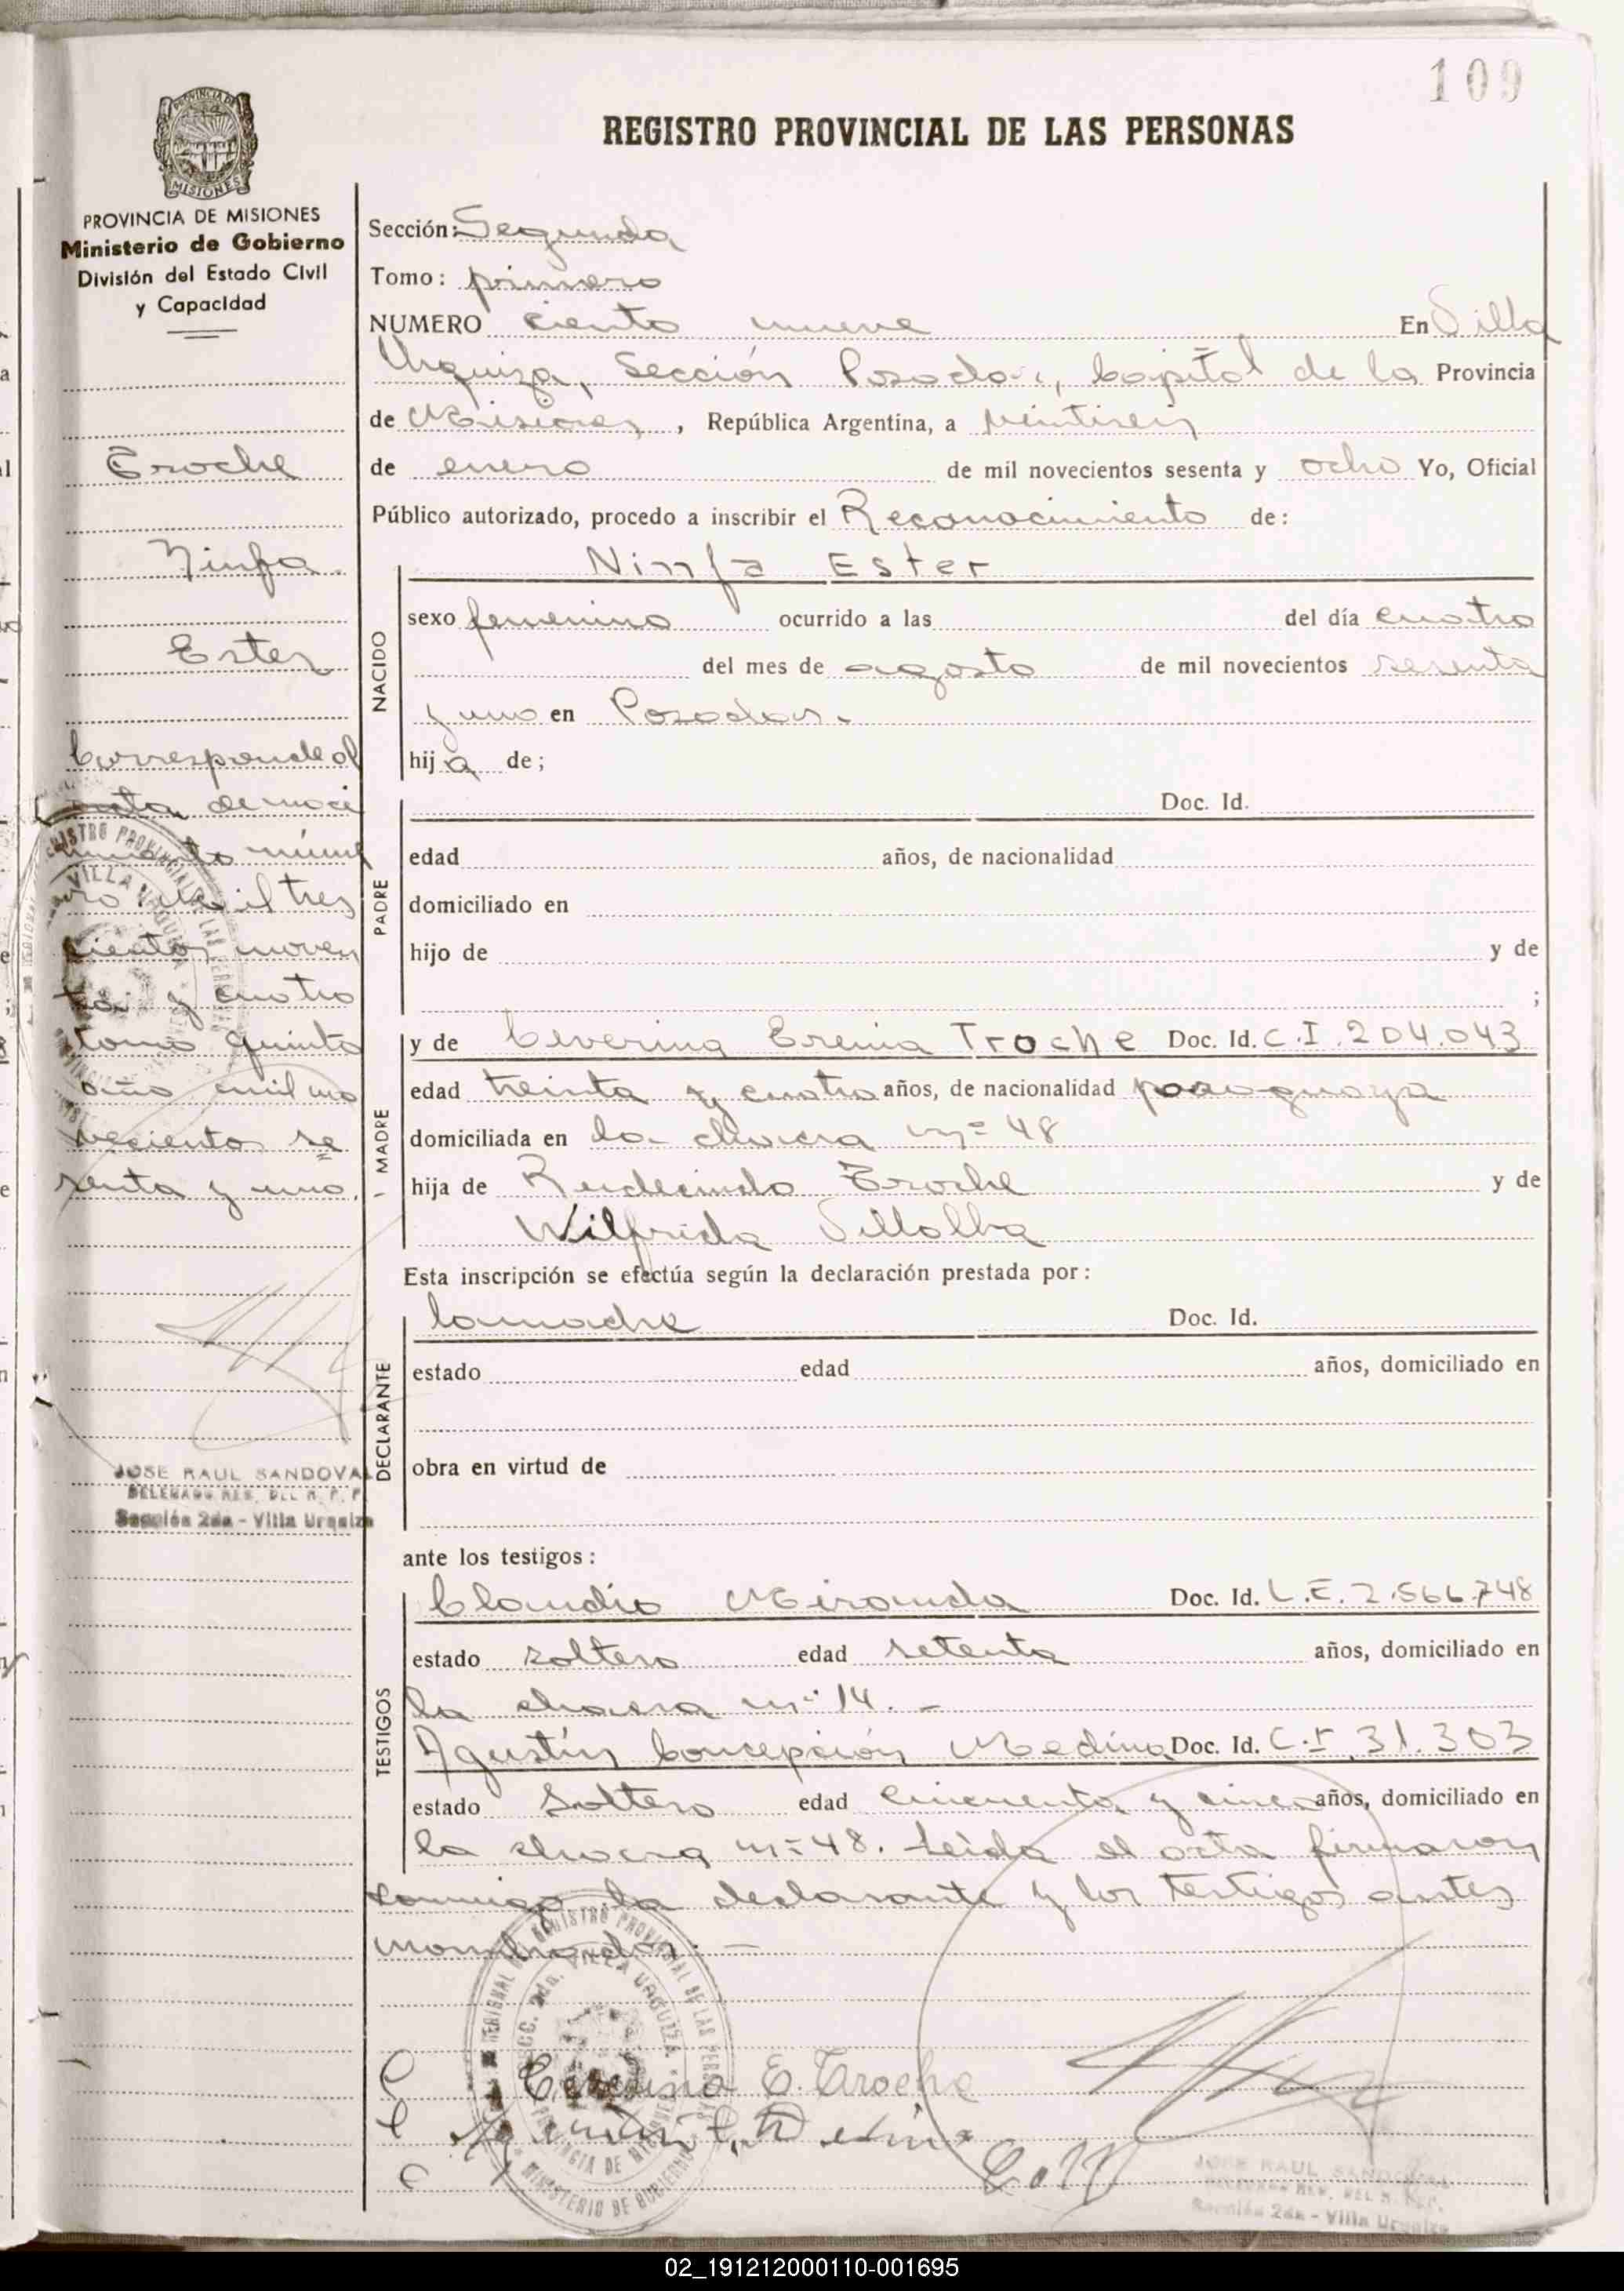 109
REGISTRO PROVINCIAL DE LAS PERSONAS
PROVINCIA DE MISIONES
Ministerio de Gobierno
División del Estado Civil
y Capacidad
Troche
Ninfa
Ester
Corresponde al
acta de naci
miento núme
ro mil tres
cientos noven
ta y cuatro
tomo quinto
año mil no
vecientos se
senta y uno.
JOSE RAUL SANDOVAL
Sección 2da - Villa Urquiza
Sección: Segunda
Tomo: primero
NUMERO ciento nueve En Villa
Urquiza, Sección Posadas, Capital de la Provincia
de Misiones, República Argentina, a veintiseis
de enero de mil novecientos sesenta y ocho Yo, Oficial
Público autorizado, procedo a inscribir el Reconocimiento de:
NACIDO
Ninfa Ester
sexo femenino ocurrido a las del día cuatro
del mes de agosto de mil novecientos sesenta
y uno en Posadas.
hija de;
PADRE
Doc. Id.
edad años, de nacionalidad
domiciliado en
hijo de y de
;
MADRE
y de Troche Doc. Id. C.I. 204.043
edad treinta y cuatro años, de nacionalidad paraguaya
domiciliada en la chacra nº 48
hija de Rudecindo Troche y de
Wilfrida Villalba
Esta inscripción se efectúa según la declaración prestada por:
DECLARANTE
la madre Doc. Id.
estado edad años, domiciliado en
obra en virtud de
ante los testigos:
TESTIGOS
Claudio Miranda Doc. Id. L.E. 2.566.748
estado soltero edad setenta años, domiciliado en
la chacra nº 14. -
Agustín Concepción Medina Doc. Id. C.I. 31.303
estado soltero edad cincuenta y cinco años, domiciliado en
la chacra nº 48. Leída el acta firmaron
conmigo la declarante y los testigos antes
nombrados. -
E. Troche
JOSE RAUL SANDOVAL
Sección 2da - Villa Urquiza
02_191212000110-001695